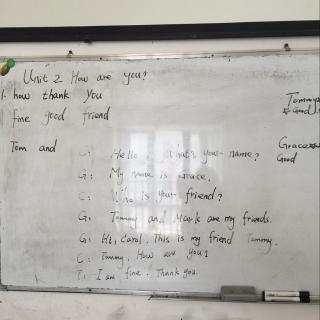 Unit 2 How are you?
1. how thank you
fine good friend
Tom and
C: Hello. What's your name?
G: My name is Grace.
C: Who is your friend?
G: Tommy and Mark are my friends.
G: Hi, Carol. This is my friend Tommy.
C: Tommy. How are you?
T: I am fine. Thank you.
Tommy
Good
Grace
Good